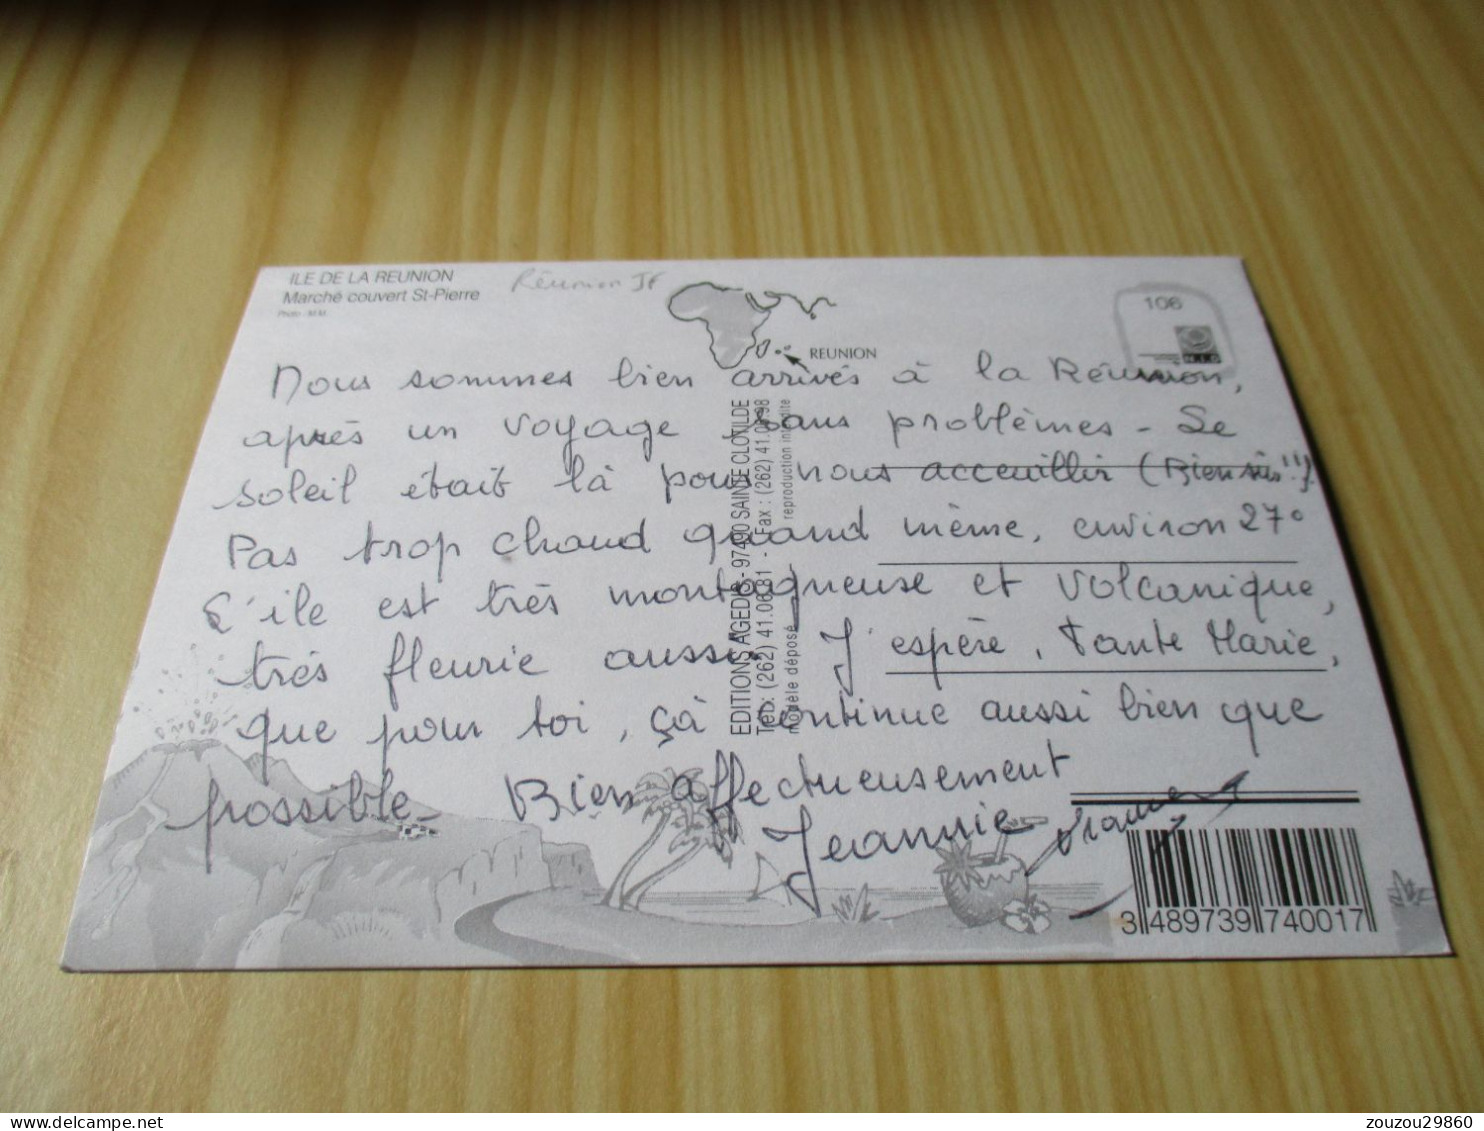 ILE DE LA REUNION
Marché couvert St-Pierre
Photo : M.M.
Réunion
REUNION
106
Nous sommes bien arrivés à la Réunion,
après un voyage sans problèmes - Le
soleil était là pour nous acceuillir (Bien sûr !!).
Pas trop chaud quand même, environ 27°
L'ile est très montagneuse et volcanique,
très fleurie aussi. J'espère, Tante Marie,
que pour toi, çà continue aussi bien que
possible - Bien affectueusement
Jeannie
EDITIONS AGEDIS - 97490 SAINTE CLOTILDE
modèle déposé
reproduction interdite
3 489739 740017
zouzou29860